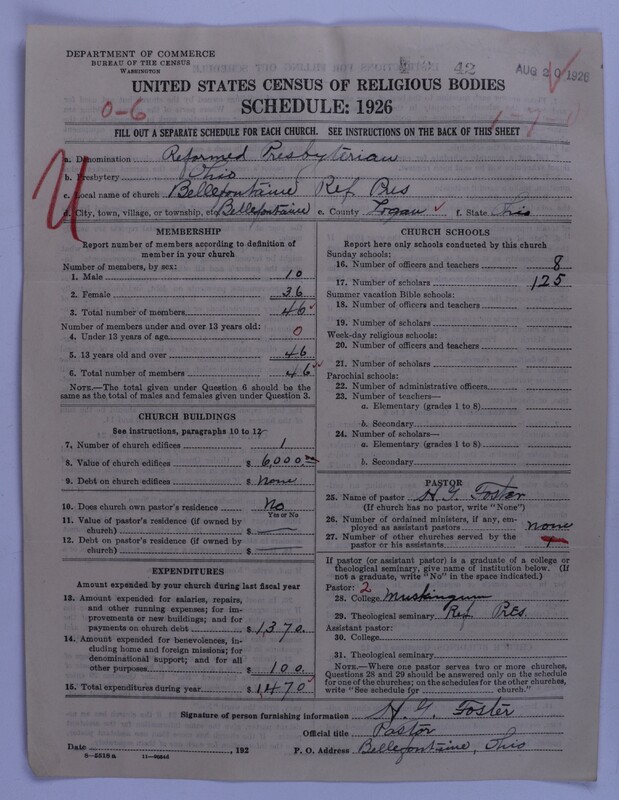 DEPARTMENT OF COMMERCE
BUREAU OF THE CENSUS
WASHINGTON
42
AUG 20 1926
UNITED STATES CENSUS OF RELIGIOUS BODIES
SCHEDULE: 1926
0-6
FILL OUT A SEPARATE SCHEDULE FOR EACH CHURCH. SEE INSTRUCTIONS ON THE BACK OF THIS SHEET
a. Denomination Reformed Presbyterian
b. Presbytery Ohio
c. Local name of church Bellefontaine Ref Pres
d. City, town, village, or township, etc. Bellefontaine e. County Logan f. State Ohio
MEMBERSHIP
Report number of members according to definition of
member in your church
Number of members, by sex:
1. Male 10
2. Female 36
3. Total number of members 46
Number of members under and over 13 years old:
4. Under 13 years of age 0
5. 13 years old and over 46
6. Total number of members 46
NOTE.—The total given under Question 6 should be the
same as the total of males and females given under Question 3.
CHURCH BUILDINGS
See instructions, paragraphs 10 to 12
7. Number of church edifices 1
8. Value of church edifices $ 6,000.
9. Debt on church edifices $ None
10. Does church own pastor's residence No
Yes or No
11. Value of pastor's residence (if owned by
church) $
12. Debt on pastor's residence (if owned by
church) $
EXPENDITURES
Amount expended by your church during last fiscal year
13. Amount expended for salaries, repairs,
and other running expenses; for im-
provements or new buildings; and for
payments on church debt $ 1,370.
14. Amount expended for benevolences, in-
cluding home and foreign missions; for
denominational support; and for all
other purposes $ 100.
15. Total expenditures during year $ 1,470
CHURCH SCHOOLS
Report here only schools conducted by this church
Sunday schools:
16. Number of officers and teachers 8
17. Number of scholars 125
Summer vacation Bible schools:
18. Number of officers and teachers
19. Number of scholars
Week-day religious schools:
20. Number of officers and teachers
21. Number of scholars
Parochial schools:
22. Number of administrative officers
23. Number of teachers—
a. Elementary (grades 1 to 8)
b. Secondary
24. Number of scholars—
a. Elementary (grades 1 to 8)
b. Secondary
PASTOR
25. Name of pastor H. G. Foster
(If church has no pastor, write "None")
26. Number of ordained ministers, if any, em-
ployed as assistant pastors none
27. Number of other churches served by the
pastor or his assistants
If pastor (or assistant pastor) is a graduate of a college or
theological seminary, give name of institution below. (If
not a graduate, write "No" in the space indicated.)
Pastor: 2
28. College Muskingum
29. Theological seminary Ref. Pres.
Assistant pastor:
30. College
31. Theological seminary
NOTE.—Where one pastor serves two or more churches,
Questions 28 and 29 should be answered only on the schedule
for one of the churches; on the schedules for the other churches,
write "See schedule for church."
Signature of person furnishing information H. G. Foster
Official title Pastor
Date , 192 P. O. Address Bellefontaine, Ohio